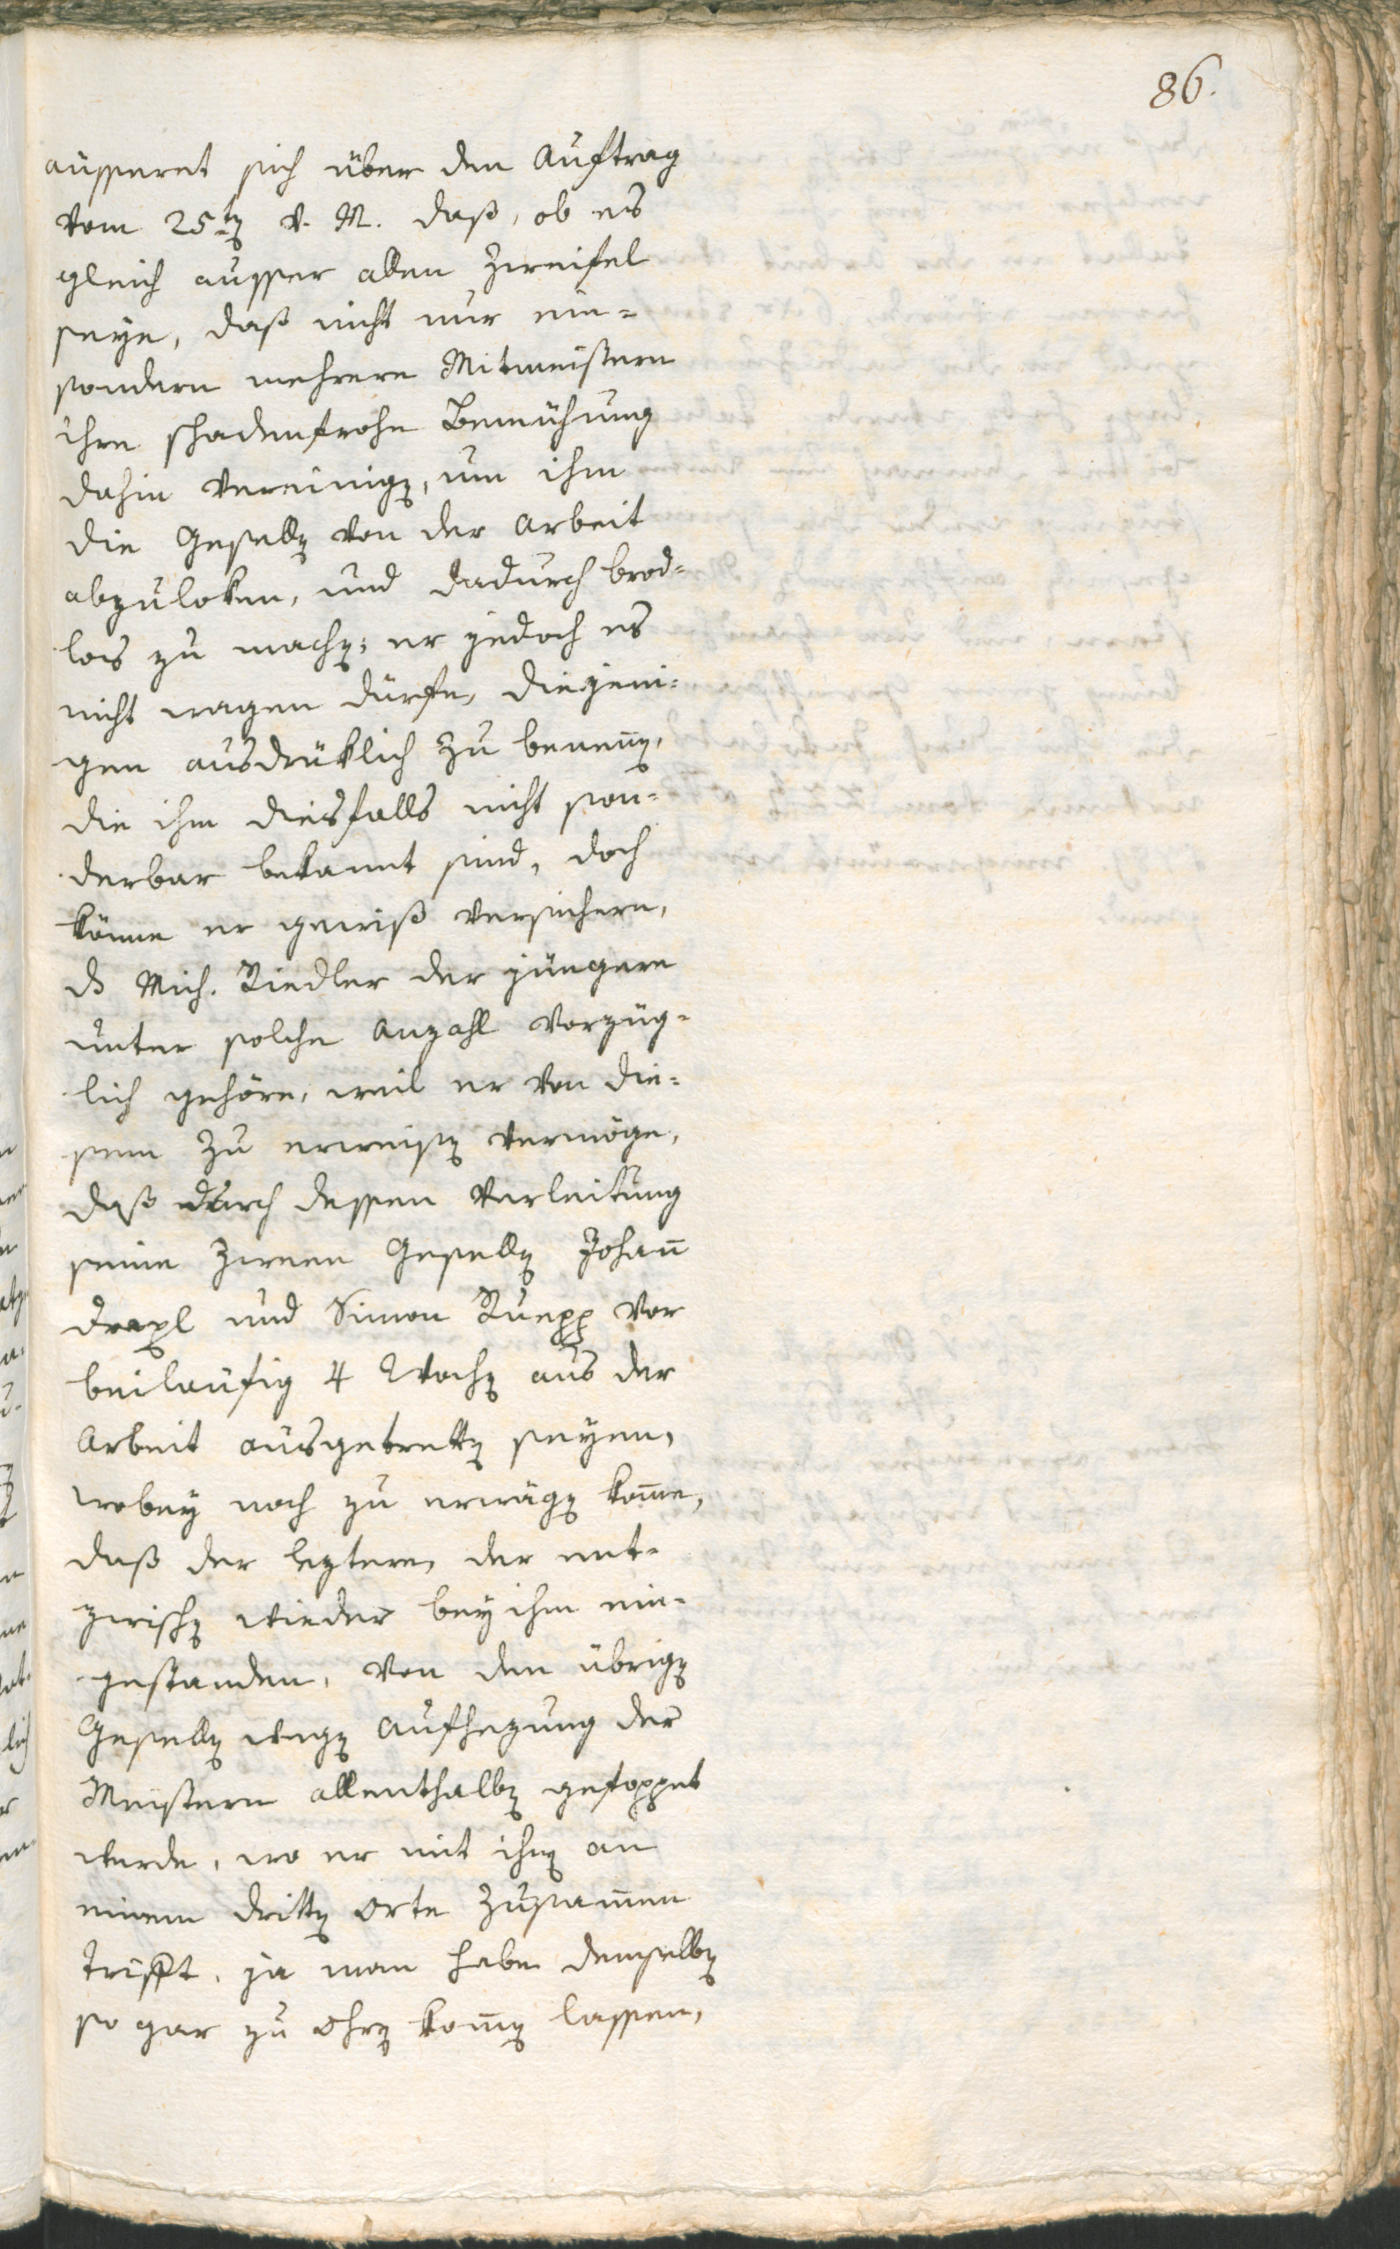 86.
äusseret sich über den Auftrag
vom 25ten v. M. daß, ob es
gleich ausser allen Zweifel
seye, daß nicht nur ein=
sondern mehrere Mitmeistern
ihre schadenfrohe Bemühung
dahin vereinigen, um ihm
die Gesellen von der Arbeit
abzuloken, und dadurch brod=
los zu machen; er jedoch es
nicht wagen dürfe, diejeni=
gen ausdrüklich zu benennen,
die ihm diesfalls nicht son=
derbar bekannt sind, doch
könne er gewiß versichern,
ds Mich. Riedler der jüngere
unter solche Anzahl vorzüg=
lich gehöre, weil er von die=
sem zu erweisen vermöge,
daß durch dessen Verleitung
seine zween Gesellen Johann
Draxl und Simon Ruepp vor
beiläufig 4 Wochen aus der
Arbeit ausgetretten seyen,
wobey noch zu erwägen komme,
daß der leztere, der ent=
zwischen wieder bey ihm ein=
gestanden, von den übrigen
Gesellen wegen Aufhezung der
Meistern allenthalben gefoppet
werde, wo er mit ihnen an
einem dritten Orte zusammen
trifft, ja man habe demselben
so gar zu Ohren kommen lassen,